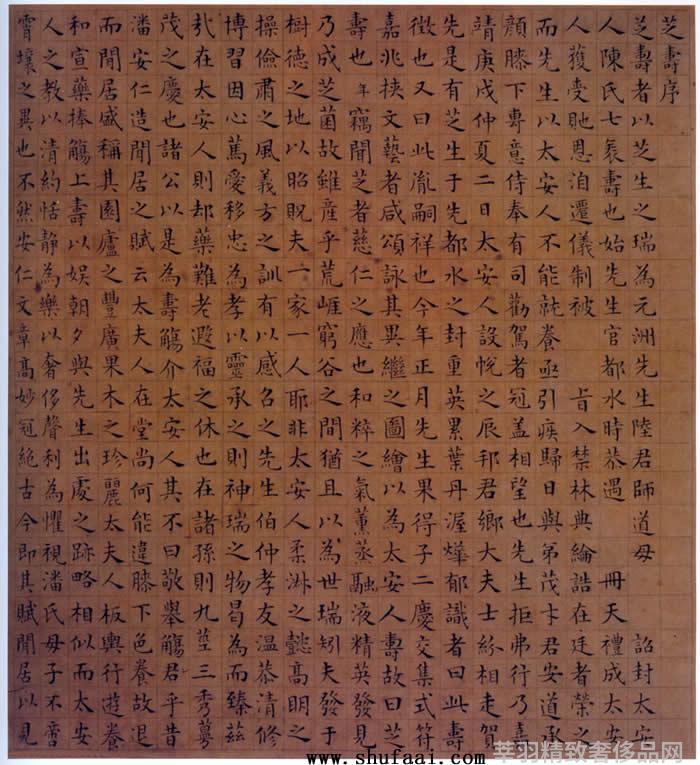 芝壽序
芝壽者以芝生之瑞為元洲先生陸君師道母　詔封太安
人陳氏七袠壽也始先生官都水時恭遇　冊天禮成太安
人獲受貤恩洎遷儀制被　旨入禁林典綸誥在廷者榮之
而先生以太安人不能就養亟引疾歸日與弟茂才君安道承
顏膝下專意侍奉有司勸駕者冠盖相望也先生拒弗行乃嘉
靖庚戌仲夏二日太安人設帨之辰邦君鄉大夫士紛相走賀
先是有芝生于先都水之封重英累葉丹渥燁郁識者曰此壽
徵也又曰此胤嗣祥也今年正月先生果得子二慶交集式符
嘉兆挾文藝者咸頌詠其異繼之圖繪以為太安人壽故曰芝
壽也年竊聞芝者慈仁之應也和粹之氣薰蒸融液精英發見
乃成芝菌故雖産乎荒崕窮谷之間猶且以為世瑞矧夫發于
樹德之地以昭貺夫一家一人耶非太安人柔淑之懿高明之
操儉肅之風義方之訓有以感召之先生伯仲孝友温恭清修
博習因心篤愛移忠為孝以靈承之則神瑞之物曷為而臻茲
㢤在太安人則却藥難老遐福之休也在諸孫則九莖三秀蕚
茂之慶也諸公以是為壽觴介太安人其不曰敬舉觴君乎昔
潘安仁造閒居之賦云太夫人在堂尚何能違膝下色養故退
而閒居盛稱其園廬之豐廣果木之珍麗太夫人板輿行遊養
和宣藥捧觴上壽以娛朝夕與先生出處之跡略相似而太安
人之教以清約恬靜為樂以奢侈聲利為懼視潘氏母子不啻
霄壤之異也不然安仁文章高妙冠絕古今即其賦閒居以見
www.shufaai.com
莘羽精致奢侈品网